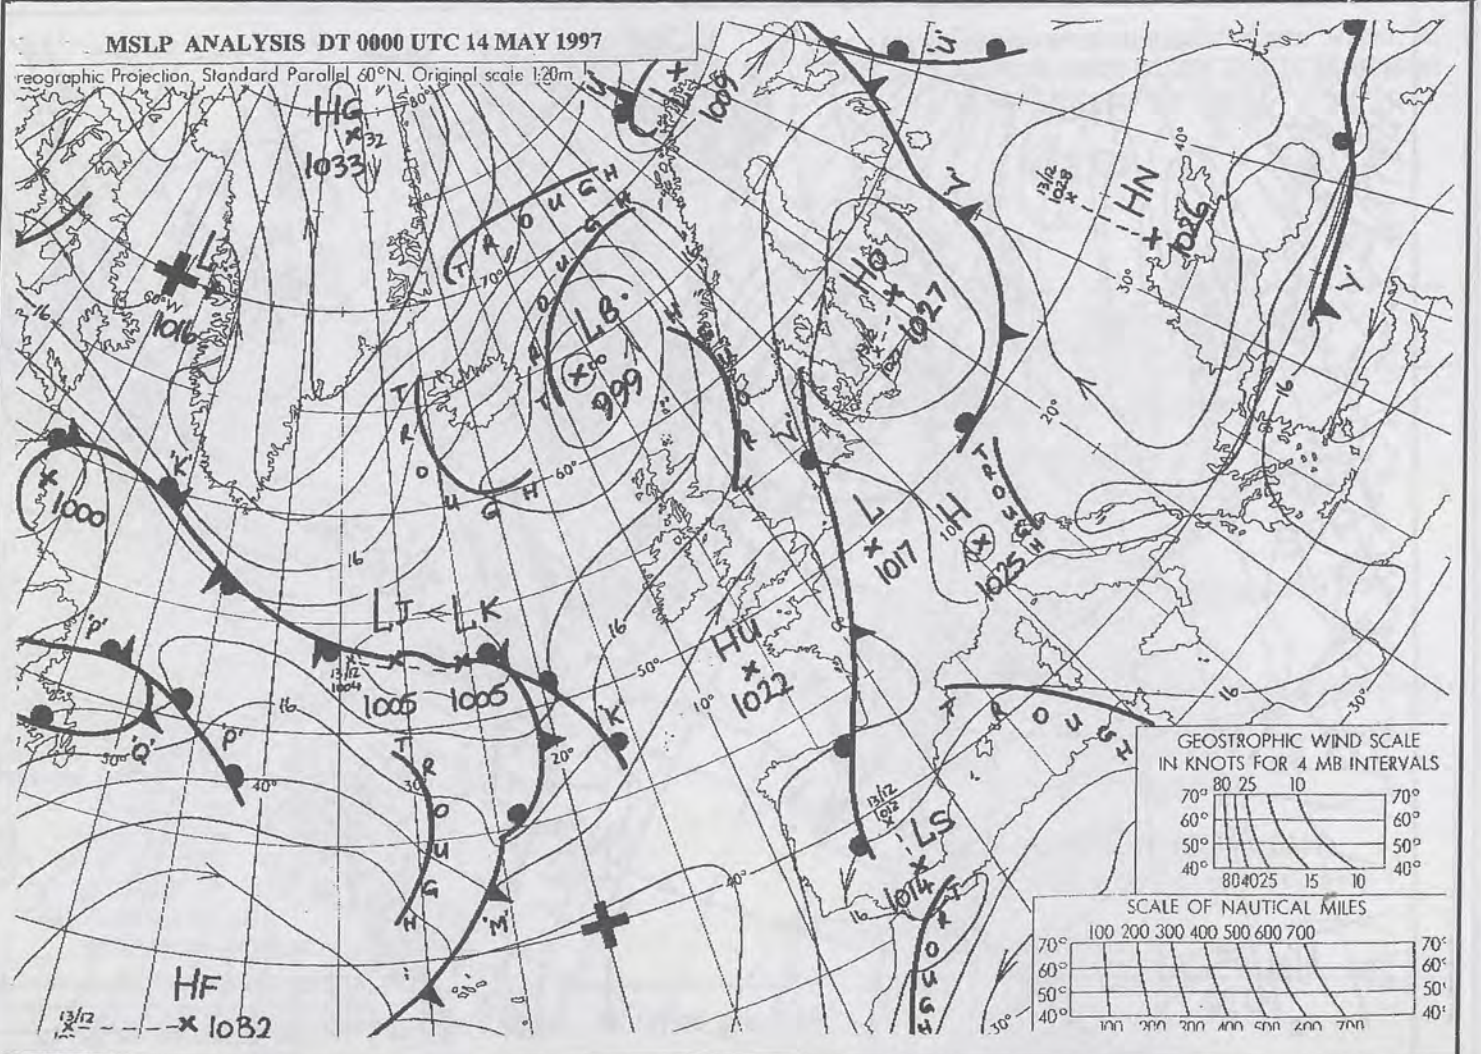 MSLP ANALYSIS DT 0000 UTC 14 MAY 1997
reographic Projection, Standard Parallel 60°N. Original scale 1:20m
80°
HG
32
1033
1009
'U'
TROUGH
TROUGH
70°
L
60°W
1016
16
LB
999
TROUGH
60°
HO
1027
13/12
1028
HN
1026
40°
30°
20°
'Y'
16
'K'
1000
16
L
1017
H
1025
TROUGH
LJ
LK
13/12
1004
1005
1005
16
50°
HU
1022
10°
'P'
'P'
'Q'
16
'K'
20°
40°
TROUGH
30°
'M'
TROUGH
16
30°
13/12
1012
LS
1014
40°
16
TROUGH
30°
HF
13/12
1032
GEOSTROPHIC WIND SCALE
IN KNOTS FOR 4 MB INTERVALS
80 25 10
70° 70°
60° 60°
50° 50°
40° 40°
804025 15 10
SCALE OF NAUTICAL MILES
100 200 300 400 500 600 700
70° 70°
60° 60°
50° 50°
40° 40°
100 200 300 400 500 600 700